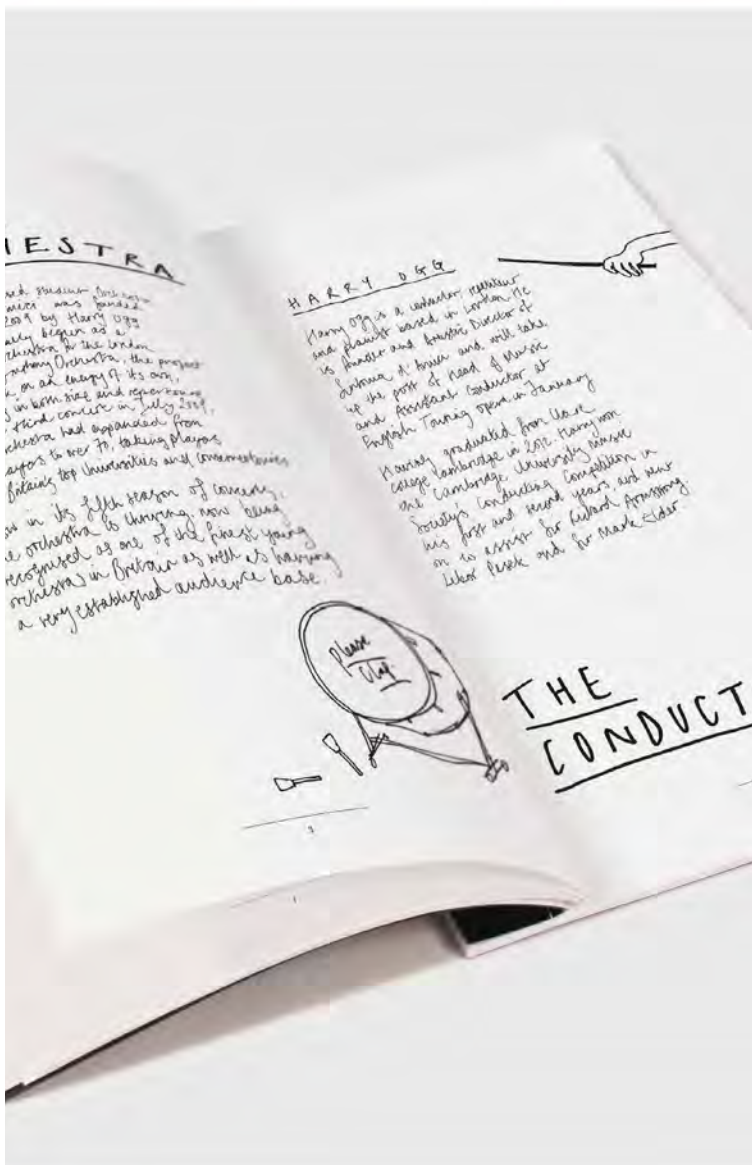 HESTRA
student Orchestra
was founded
2009 by Harry Ogg
begun as a
Orchestra for the London
Symphony Orchestra, the project
on an energy of its own,
in both size and repertoire
third concert in July 2009,
orchestra had expanded from
players to over 70, taking players
Britain's top universities and conservatories
in its fifth season of concerts,
orchestra is thriving, now being
recognised as one of the finest young
orchestras in Britain as well as having
a very established audience base.
please
clap
3
1
HARRY OGG
Harry Ogg is a conductor, repetiteur
and pianist based in London. He
is founder and Artistic Director of
Sinfonia d'Amici and will take
up the post of Head of Music
and Assistant Conductor at
English Touring Opera in January
Having graduated from Clare
College Cambridge in 2012. Harry won
the Cambridge University Music
Society's Conducting Competition in
his first and second years, and went
on to assist Sir Richard Armstrong
Libor Pesek and Sir Mark Elder.
THE
CONDUCT